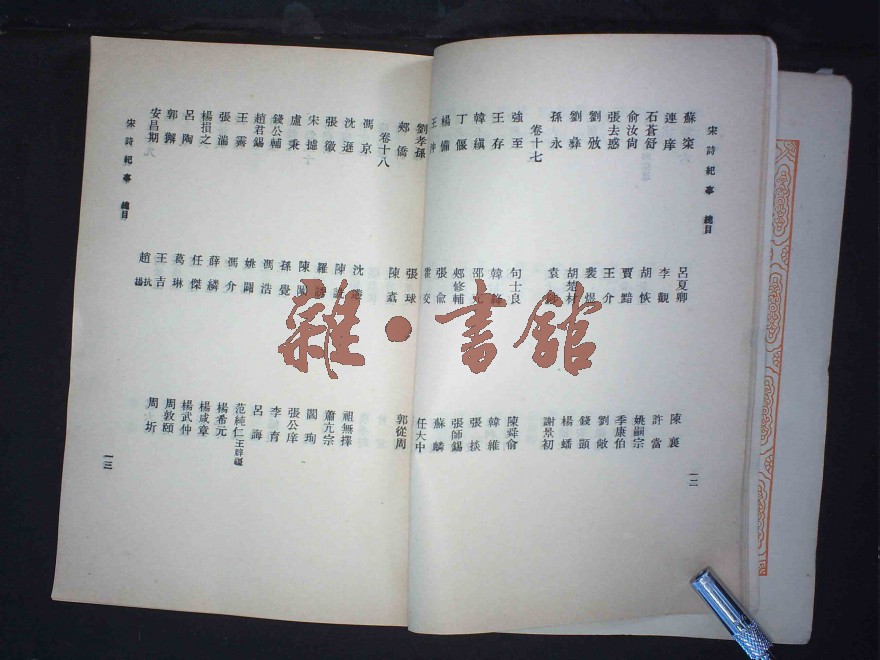 宋詩紀事 總目 一二
蘇棨 呂夏卿 陳襄
連庠 李觀 許當
石蒼舒 胡恢 姚嗣宗
俞汝尚 賈黯 季康伯
張去惑 王介 劉敞
劉攽 裴煜 錢顗
劉彝 胡楚材 楊蟠
孫永 袁 謝景初
卷十七
強至 句士良 陳舜俞
王存 韓 韓維
韓縝 邵 張掞
丁偃 郟修輔 張師錫
楊備 張俞 蘇麟
王 任大中
劉孝孫 張球 郭從周
郟僑 陳嘉
卷十八
馮京 沈 祖無擇
沈遼 陳 蕭亢宗
張徽 羅 閻珣
宋摅 陳 張公庠
盧秉 孫覺 李育
錢公輔 馮浩 呂誨
趙君錫 姚闢 范純仁 王辟疆
王霽 馮介 楊希元
張湍 薛麟 楊咸章
楊損之 任傑 楊武仲
呂陶 葛琳 周敦頤
郭獬 王吉 周圻
安昌期 趙抗 揚
宋詩紀事 總目 一三
雜·書館